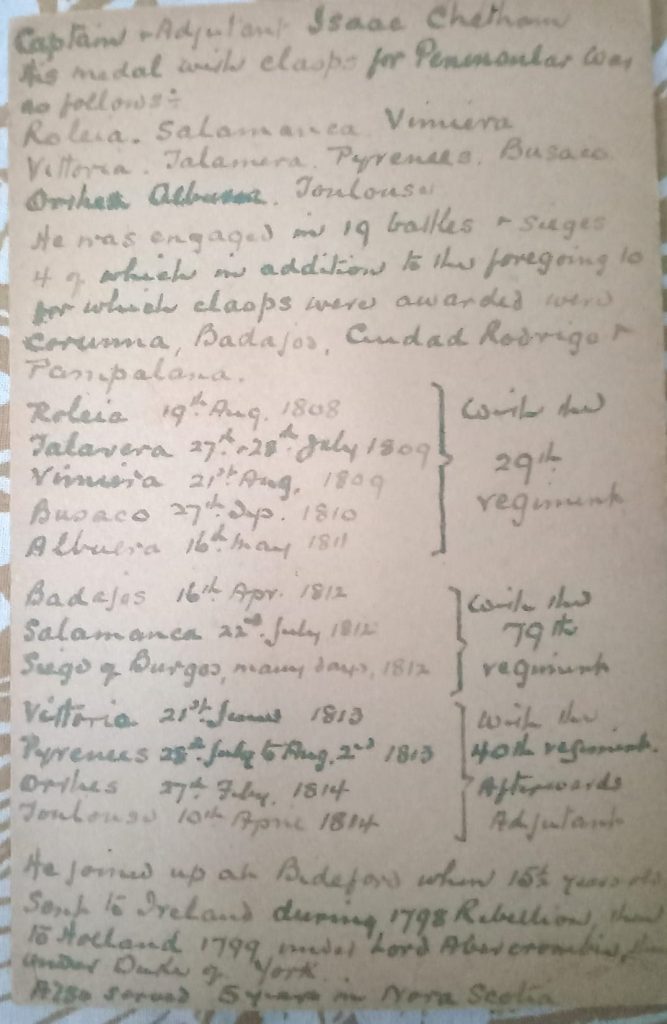 Captain & Adjutant Isaac Chetham
His medal with clasps for Peninsular War
as follows:-
Roleia. Salamanca. Vimiera
Vittoria. Talamera. Pyrenees. Busaco
Orthes Albuera. Toulouse
He was engaged in 19 battles & sieges
4 of which in addition to the foregoing 10
for which clasps were awarded were
Corunna, Badajos, Ciudad Rodrigo &
Pampalana.
Roleia 19th Aug. 1808
Talavera 27th-28th July 1809
Vimiera 21st Aug. 1809
Busaco 27th Sep. 1810
Albuera 16th May 1811
with the
29th
regiment
Badajos 16th Apr. 1812
Salamanca 22nd July 1812
Siege of Burgos, many days, 1812
with the
79th
regiment
Vittoria 21st June 1813
Pyrenees 28th July to Aug. 2nd 1813
Orthes 27th Feby. 1814
Toulouse 10th April 1814
with the
40th regiment.
Afterwards
Adjutant
He joined up at Bideford when 15½ years old
Sent to Ireland during 1798 Rebellion, then
to Holland 1799 under Lord Abercrombie, then
under Duke of York.
Also served 5 years in Nova Scotia